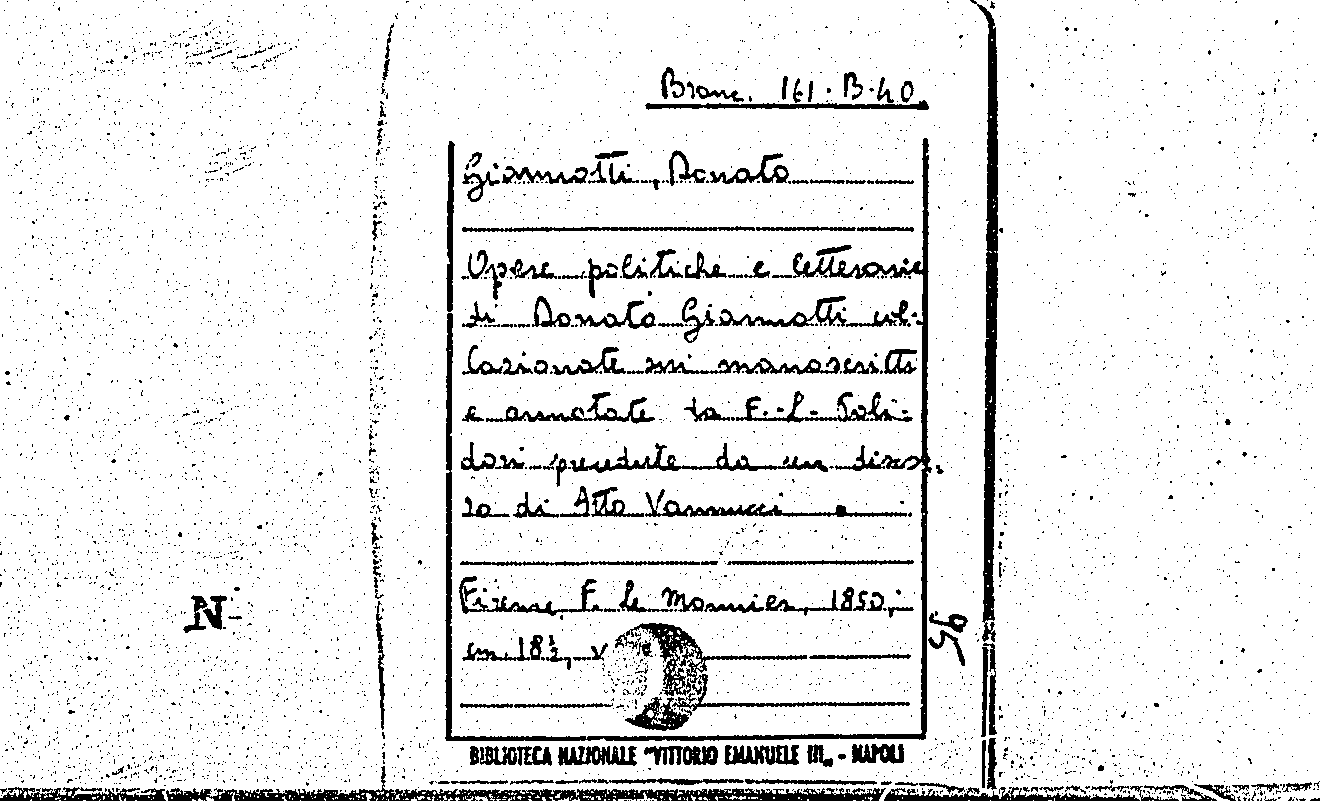 Branc. 161.B.40
Giannotti, Donato
Opere politiche e letterarie
di Donato Giannotti col-
lazionate sui manoscritti
e annotate da F.-L- Poli-
dori precedute da un discor-
so di Atto Vannucci
Firenze, F. Le Monnier, 1850;
cm. 18½, v
N-
BIBLIOTECA NAZIONALE "VITTORIO EMANUELE III„ - NAPOLI